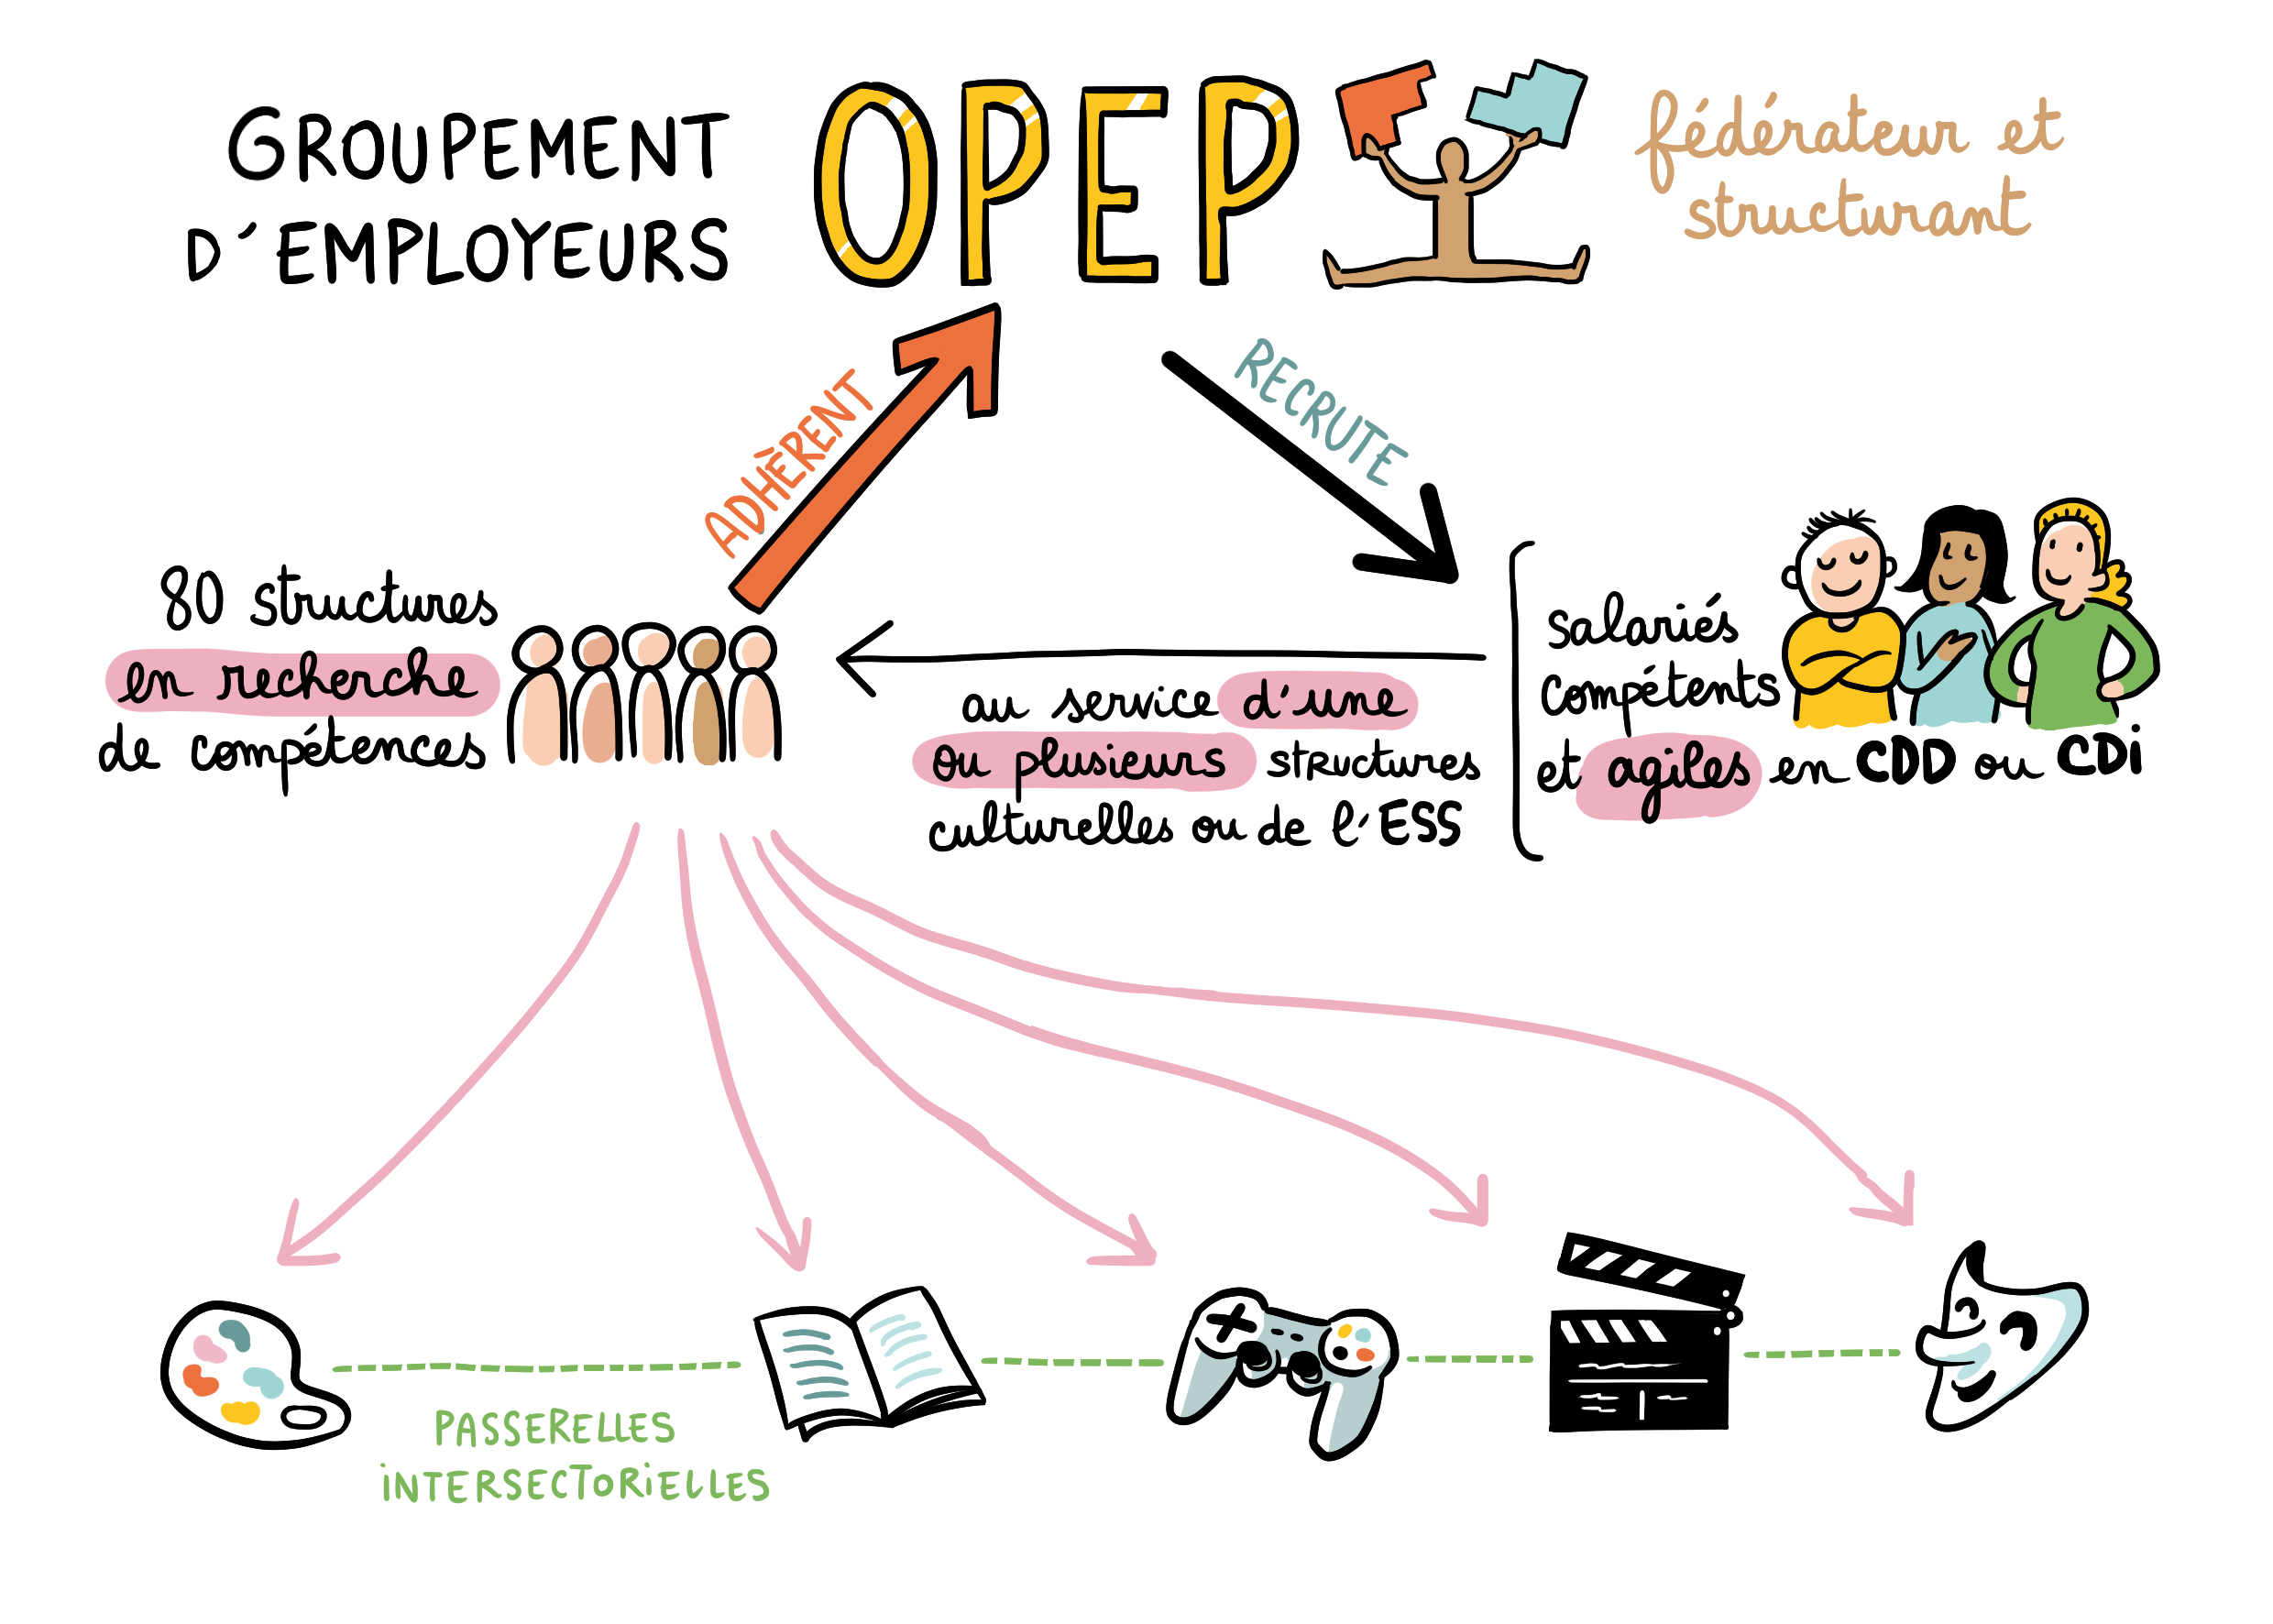 GROUPEMENT
D'EMPLOYEURS
OPEP
fédérateur et
structurant
ADHÉRENT
RECRUTE
80 structures
en recherche
de compétences
au service d'une
ou plusieurs structures
culturelles ou de l'ESS
salariés
compétents
et agiles en CDD ou CDi
PASSERELLES
iNTERSECTORiELLES